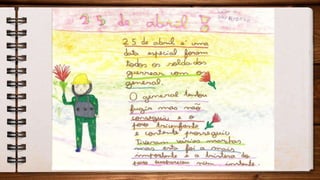 25 de abril
25 de abril é uma
data especial foram
todos os soldados
guerrear com os
general.
O general tentou
fugir mas não
conseguiu e o
foro triunfante
e contente prosseguiu
Tiveram vários mortos
mas esta foi a mais
importante e a